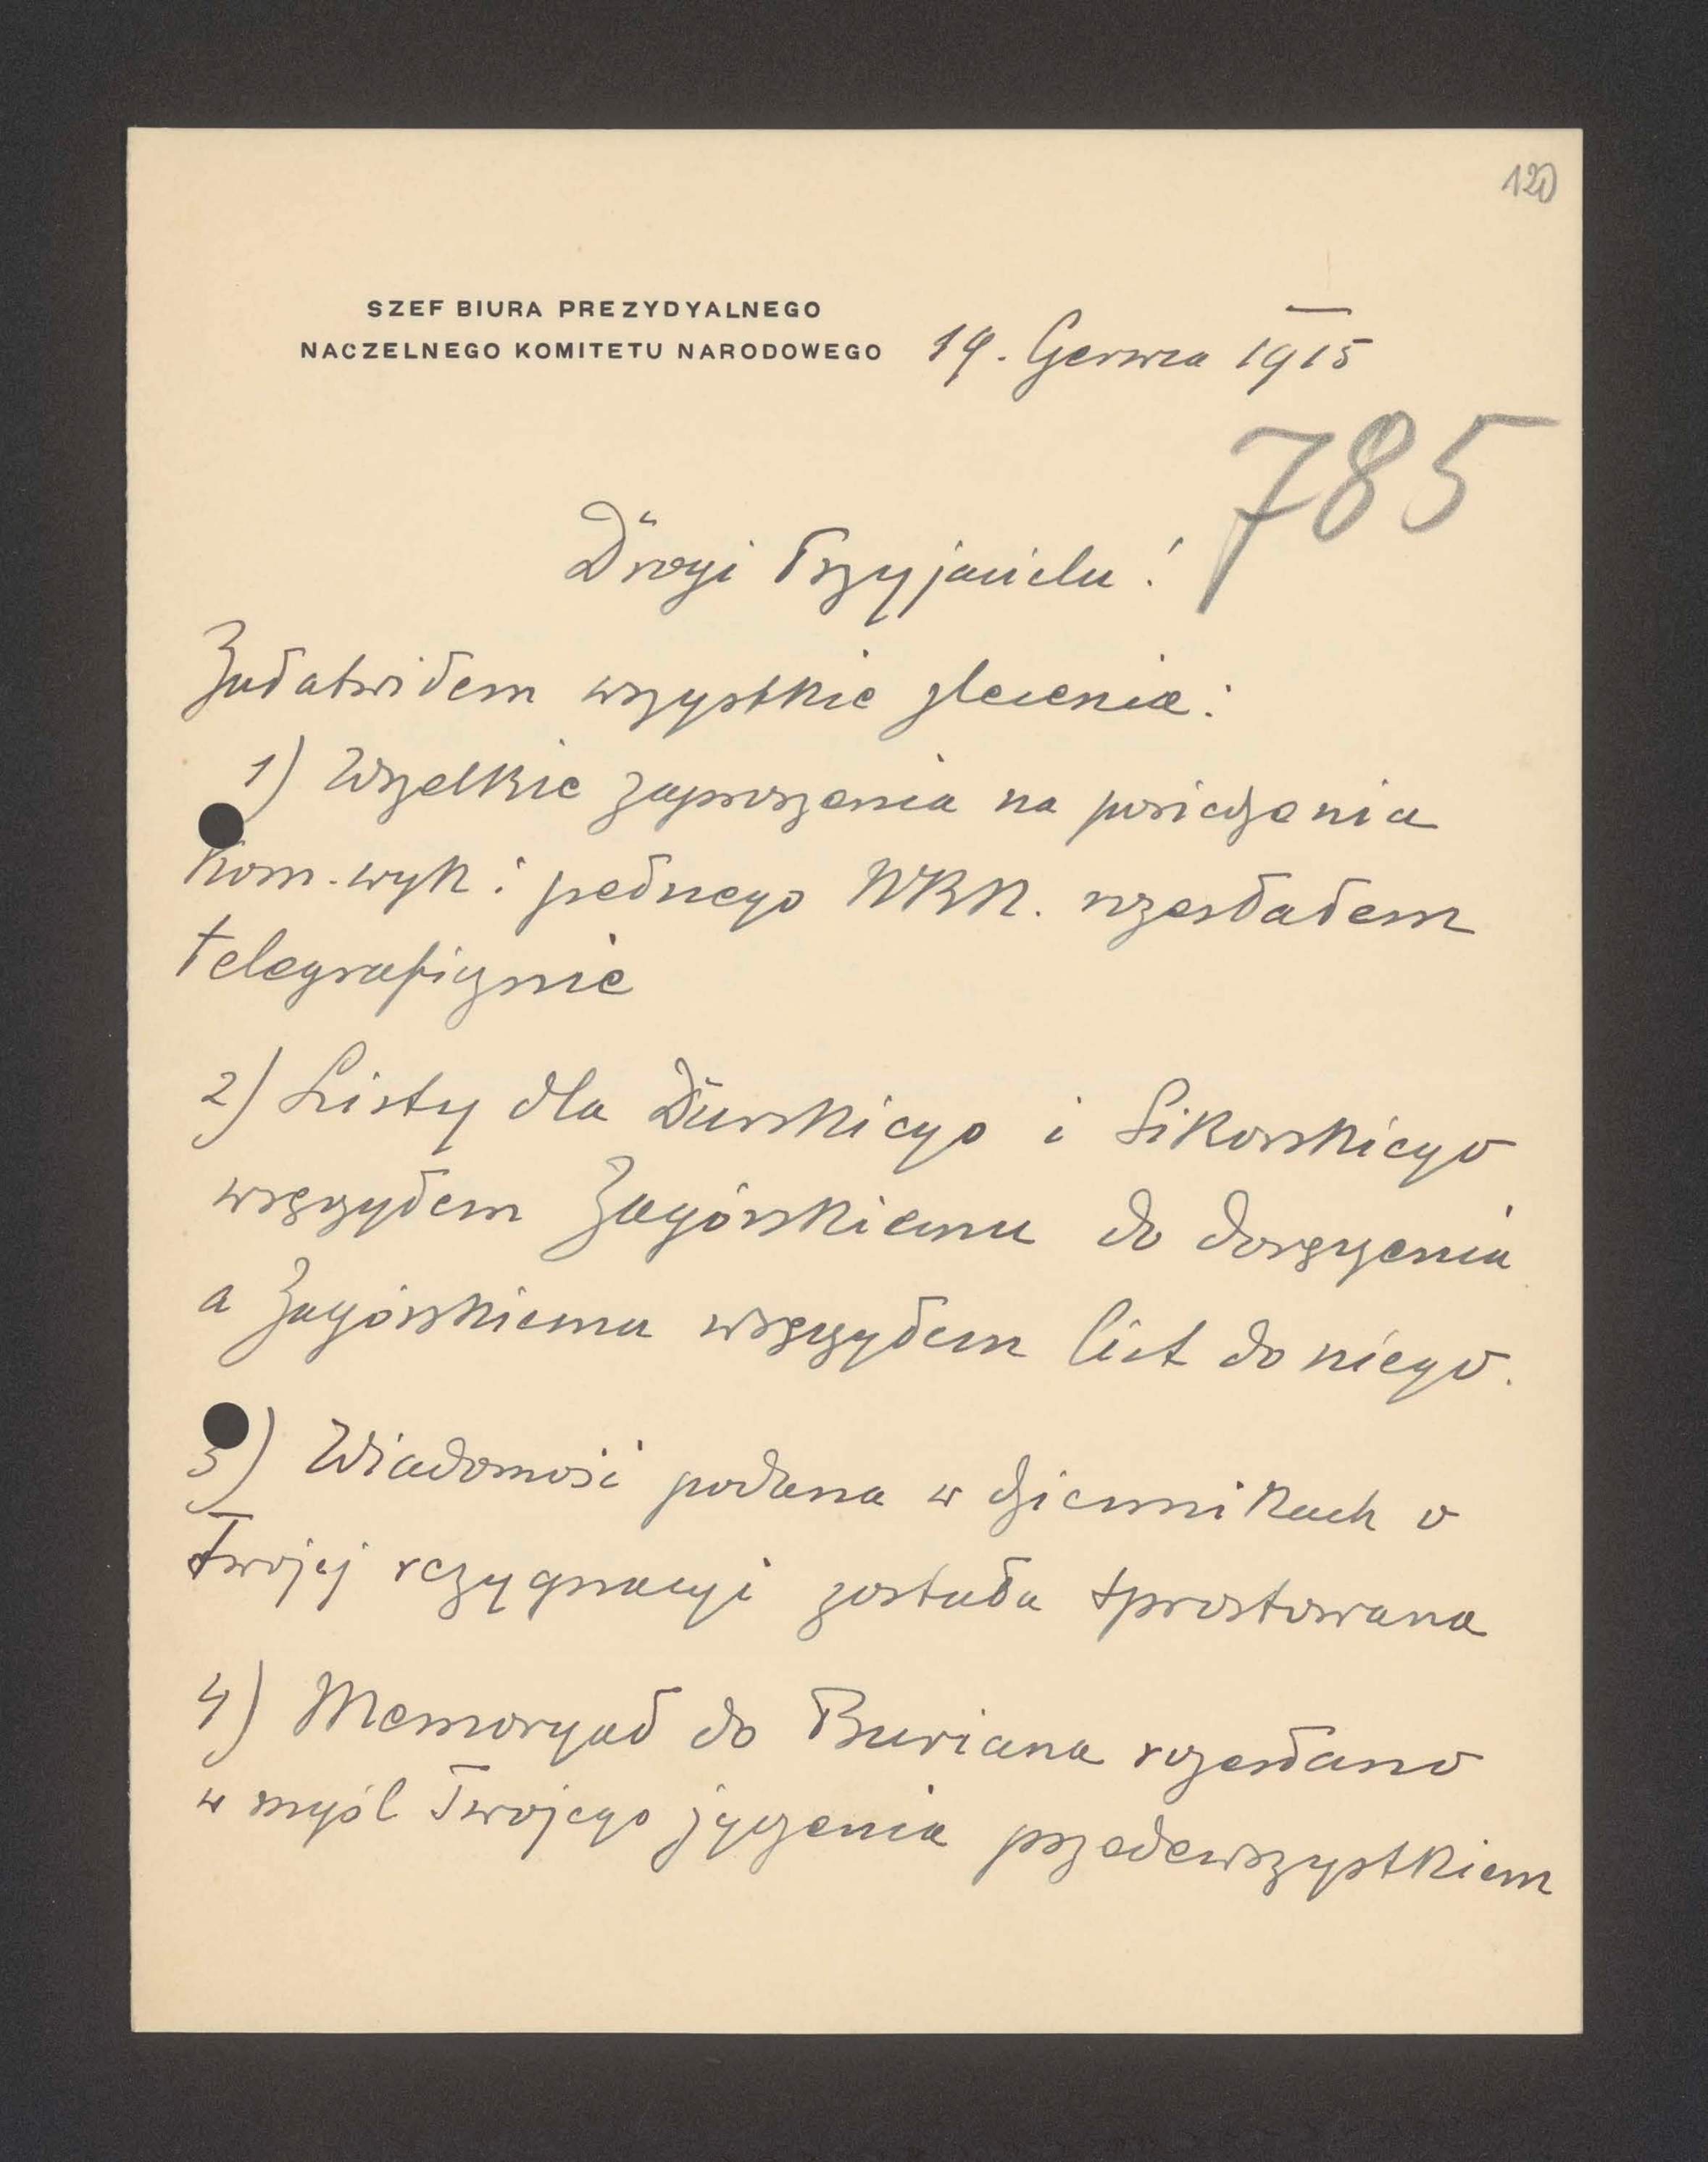 120
SZEF BIURA PREZYDYALNEGO
NACZELNEGO KOMITETU NARODOWEGO 19. Czerwca 1915
785
Drogi Przyjacielu!
Załatwiłem wszystkie zlecenia:
1) Wszelkie zaproszenia na posiedzenia
Kom. wyk i pełnego NKN. rozesłałem
telegraficznie
2) Listy dla Durskiego i Sikorskiego
wręczyłem Zagórskiemu do doręczenia
a Zagórskiemu wręczyłem list do niego.
3) Wiadomość podana w dziennikach o
Twojej rezygnacyi została sprostowana
4) Memoryał do Buriana rozesłano
w myśl Twojego życzenia przedewszystkiem